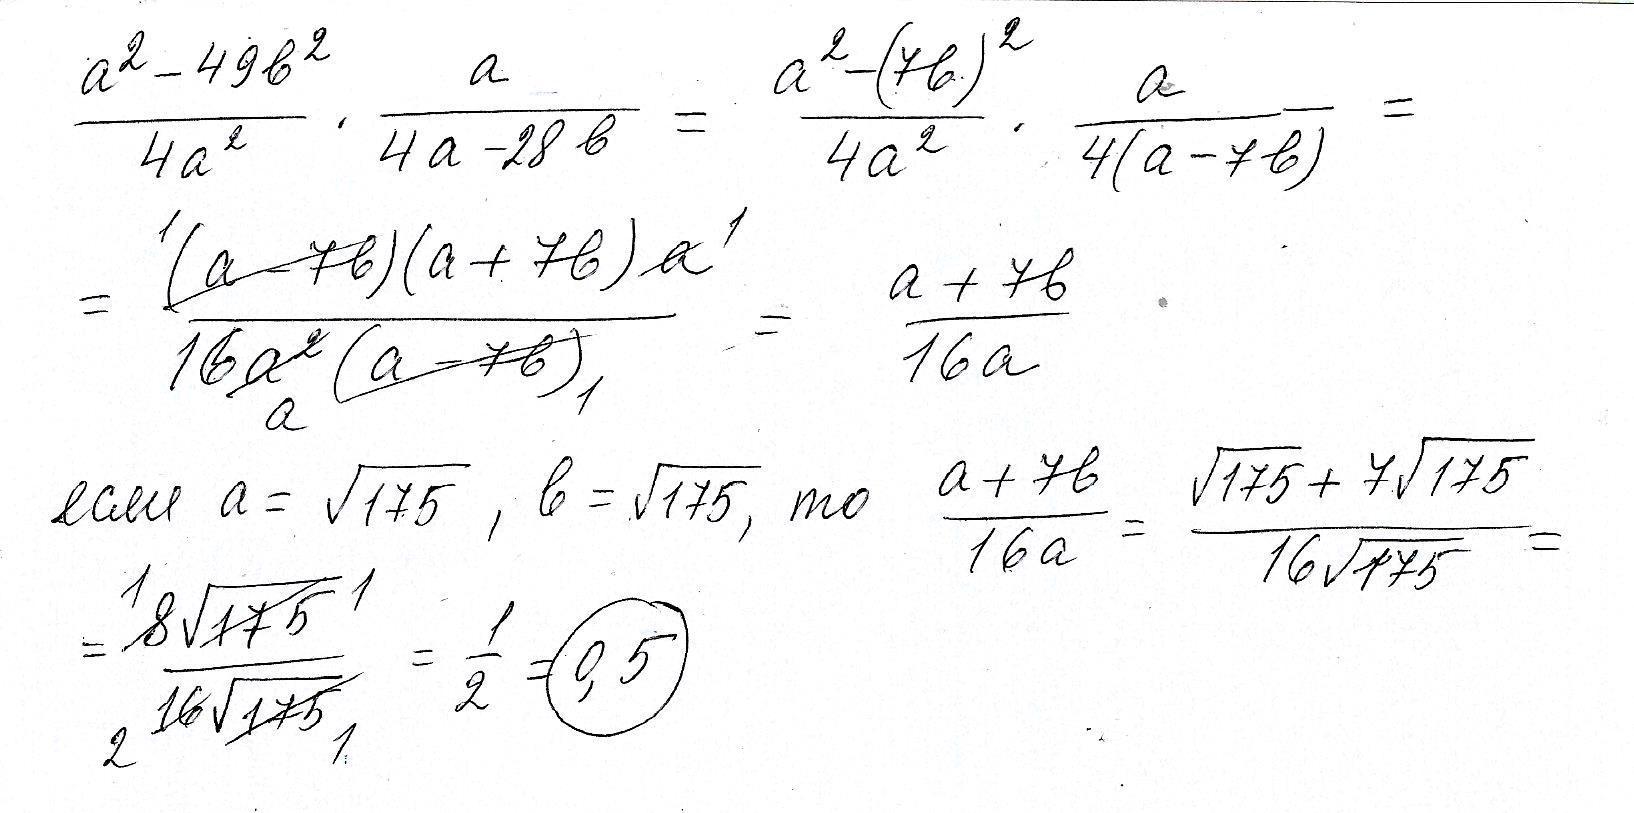 (a² − 49b²)/(4a²) · a/(4a − 28b) = (a² − (7b)²)/(4a²) · a/(4(a − 7b)) =
= ¹(a − 7b)(a + 7b)a¹/(16a²(a − 7b)₁) a = (a + 7b)/(16a)
если a = √175, b = √175, то (a + 7b)/(16a) = (√175 + 7√175)/(16√175) =
= ¹8√175¹/(₂16√175₁) = 1/2 = 0,5